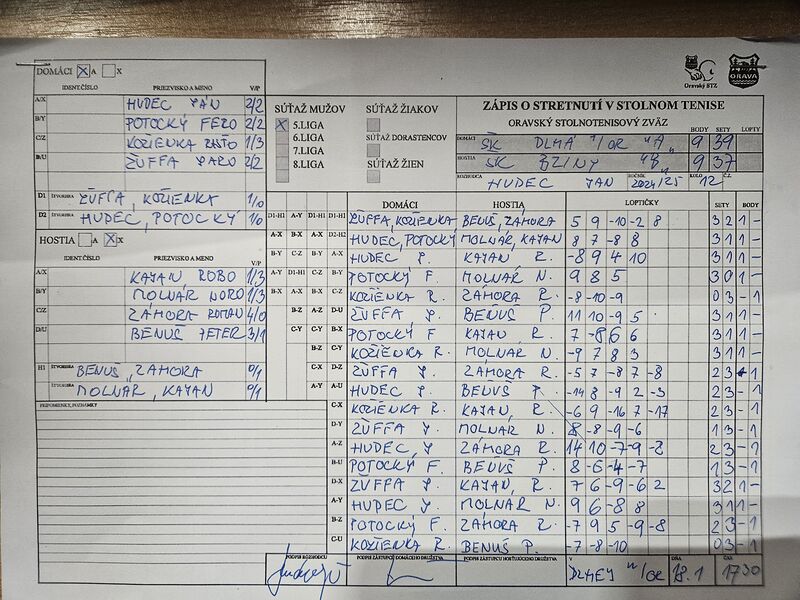 DOMÁCI X A X
IDENT.ČÍSLO PRIEZVISKO A MENO V/P
A/X HUDEC JÁN 2/2
B/Y POTOCKÝ FERO 2/2
C/Z KOŽIENKA RASŤO 1/3
D/U ŽUFFA JARO 2/2
D1 ŠTVORHRA ŽUFFA, KOŽIENKA 1/0
D2 ŠTVORHRA HUDEC, POTOCKÝ 1/0
HOSTIA A X X
IDENT.ČÍSLO PRIEZVISKO A MENO V/P
A/X KAJAN ROBO 1/3
B/Y MOLNÁR NORO 1/3
C/Z ZÁMORA ROMAN 4/0
D/U BENUŠ PETER 3/1
H1 ŠTVORHRA BENUŠ, ZÁMORA 0/1
ŠTVORHRA MOLNÁR, KAJAN 0/1
PRIPOMIENKY, POZNÁMKY
SÚŤAŽ MUŽOV
X 5.LIGA
6.LIGA
7.LIGA
8.LIGA
SÚŤAŽ ŽIAKOV
SÚŤAŽ DORASTENCOV
SÚŤAŽ ŽIEN
Oravský STZ
ORAVA
ZÁPIS O STRETNUTÍ V STOLNOM TENISE
ORAVSKÝ STOLNOTENISOVÝ ZVÄZ
BODY SETY LOPTY
DOMÁCI ŠK DLHÁ N/OR "A" 9 39
HOSTIA ŠK BZINY "B" 9 37
ROZHODCA HUDEC JAN ROČNÍK 2024/25 KOLO 12 Č.Z.
DOMÁCI HOSTIA LOPTIČKY SETY BODY
D1-H1 A-Y D1-H1 D1-H1 ŽUFFA, KOŽIENKA BENUŠ, ZÁMORA 5 9 -10 -2 8 3 2 1 -
A-X B-X A-X D2-H2 HUDEC, POTOCKÝ MOLNÁR, KAJAN 8 7 -8 8 3 1 1 -
B-Y C-Z B-Y A-X HUDEC J. KAJAN R. -8 9 4 10 3 1 1 -
A-Y D1-H1 C-Z B-Y POTOCKÝ F. MOLNÁR N. 9 8 5 3 0 1 -
B-X A-X B-X C-Z KOŽIENKA R. ZÁMORA R. -8 -10 -9 0 3 - 1
B-Z A-Z D-U ŽUFFA J. BENUŠ P. 11 10 -9 5 3 1 1 -
C-Y B-Y B-X POTOCKÝ F. KAJAN R. 7 -8 6 6 3 1 1 -
B-Z C-Y KOŽIENKA R. MOLNÁR N. -9 7 8 3 3 1 1 -
C-X D-Z ŽUFFA J. ZÁMORA R. -5 7 -8 7 -8 2 3 - 1
A-Y A-U HUDEC J. BENUŠ P. -14 8 -9 2 -3 2 3 - 1
C-X KOŽIENKA R. KAJAN, R. -6 9 -16 7 -17 2 3 - 1
D-Y ŽUFFA J. MOLNÁR N. 8 -8 -9 -6 1 3 - 1
A-Z HUDEC, J. ZÁMORA R. 14 10 -7 -9 -8 2 3 - 1
B-U POTOCKÝ F. BENUŠ P. 8 -6 -4 -7 1 3 - 1
D-X ŽUFFA J. KAJAN, R. 7 6 -9 -6 2 3 2 1 -
A-Y HUDEC J. MOLNÁR N. 9 6 -8 8 3 1 1 -
B-Z POTOCKÝ F. ZÁMORA R. -7 9 5 -9 -8 2 3 - 1
C-U KOŽIENKA R. BENUŠ P. -7 -8 -10 0 3 - 1
PODPIS ROZHODCU PODPIS ZÁSTUPCU DOMÁCEHO DRUŽSTVA PODPIS ZÁSTUPCU HOSŤUJÚCEHO DRUŽSTVA V DLHEJ N/OR DŇA 18.1 ČAS 17:30